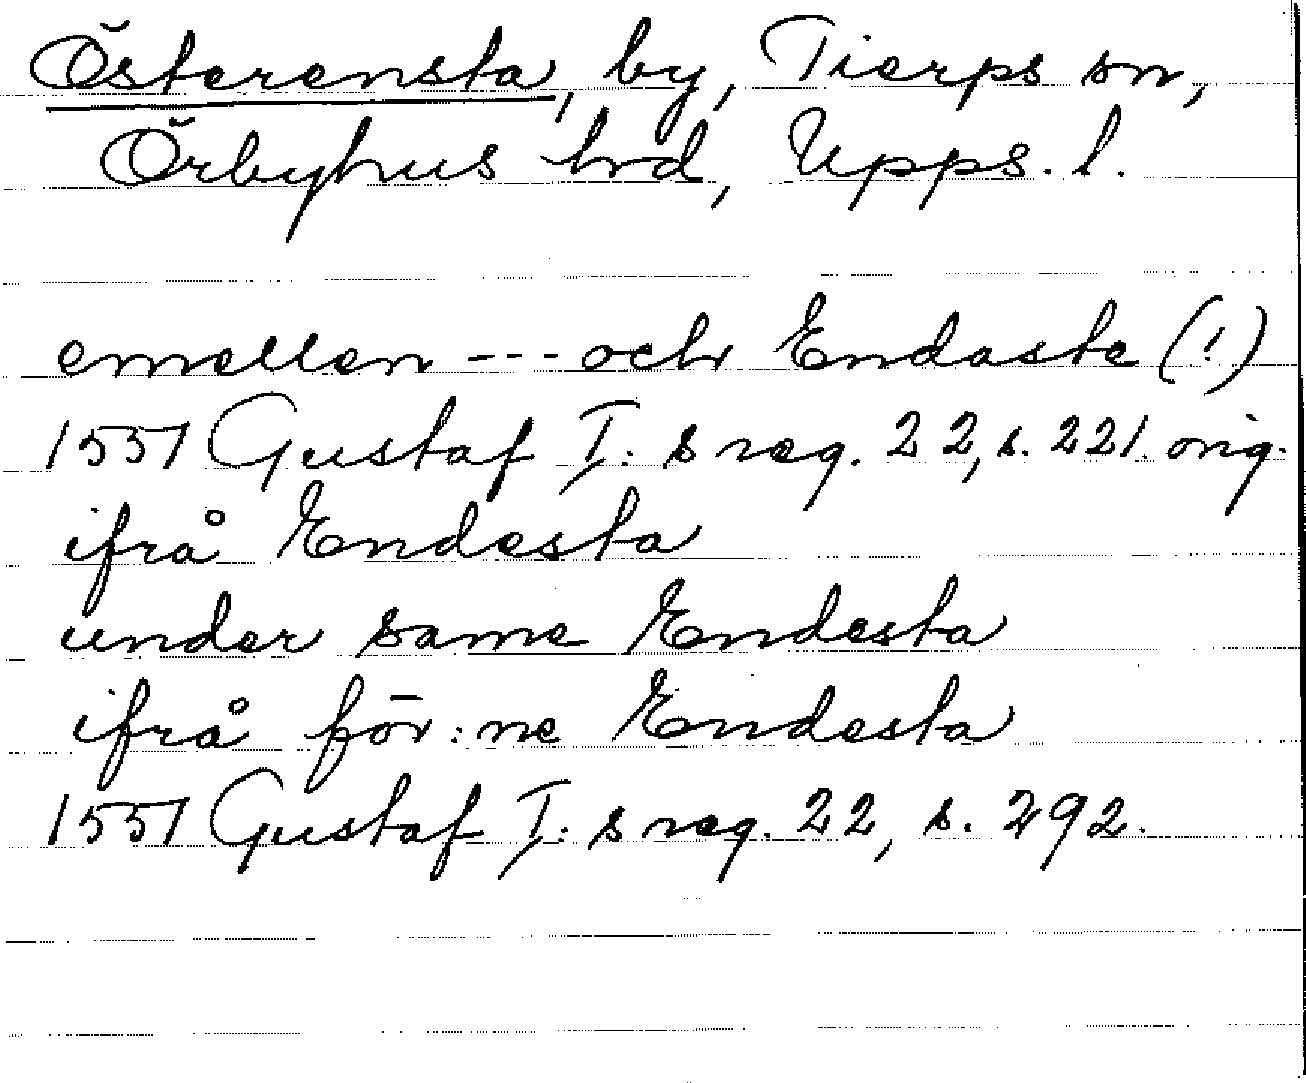 Österensta, by, Tierps sn,
Örbyhus hrd, Upps. l.
emellen --- och Endaste (!)
1551 Gustaf I:s reg. 22, s. 221. orig.
ifrå Endesta
under same Endesta
ifrå för:ne Endesta
1551 Gustaf I:s reg. 22, s. 292.